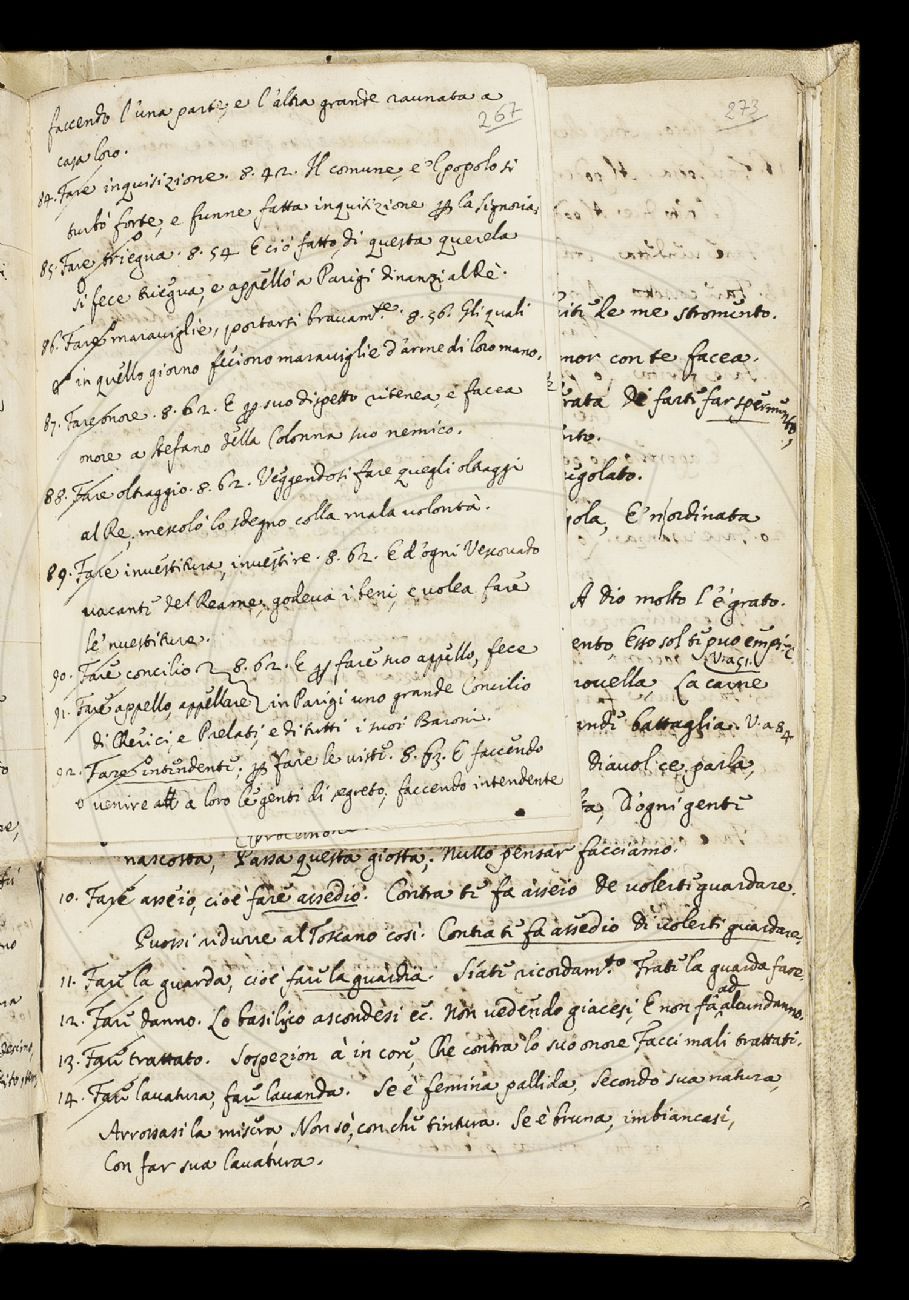 267
faccendo l'una parte, e l'altra grande raunata a
casa loro.
84. Fare inquisizione. 8. 42. Il comune, e 'l popolo si
turbò forte, e funne fatta inquisizione la Signoria.
85. Fare triegua. 8. 54. E ciò fatto, di questa querela
si fece triegua, e appellò a Parigi dinanzi al Re.
86. Fare maraviglie, portarsi bravam.te 8. 56. Gli quali
in quello giorno feciono maraviglie d'arme di loro mano.
87. Fare onore. 8. 62. E suo dispetto ritenea, e facea
onore a Stefano della Colonna suo nemico.
88. Fare oltraggio. 8. 62. Veggendosi fare quegli oltraggi
al Re, mescolò lo sdegno colla mala volontà.
89. Fare investitura, investire. 8. 62. E d'ogni Vescovado
vacante del Reame, godeva i beni, e volea fare
le 'nvestiture.
90. Fare concilio 8. 62. E fare suo appello, fece
91. Fare appello, appellare in Parigi uno grande Concilio
di Cherici, e Prelati, e di tutti i suoi Baroni.
92. Fare intendente; fare le viste. 8. 63. E faccendo
venire a loro le genti di segreto, faccendo intendente
273
me stromento.
con te facea.
di farti far spermento,
golato.
E' n'ordinata
A dio molto l'è grato.
Esso sol ti può
novella, La carne
battaglia. V. a 84
diavol ce parla,
D'ogni gente
nascosta, Passa questa giotta, Nullo pensar facciamo.
10. Fare asseio, cioè fare assedio. Contra te fa asseio De volerti guardare.
Puossi ridurre al Toscano così. Contra te fa assedio di volerti guardare.
11. Fare la guarda, cioè fare la guardia. Siate ricordam.to Frate la guarda fare.
12. Fare danno. Lo basilisco ascondesi ec. Non vedendo giacesi, E non fa ad alcun danno.
13. Fare trattato. Sospezion à in core, Che contra lo suo onore Facci mali trattati.
14. Fare lavatura, fare lavanda. Se è femina pallida, Secondo sua natura,
Arrossasi la misera, Non sò, con che tintura. Se è bruna, imbiancasi,
Con far sua lavatura.